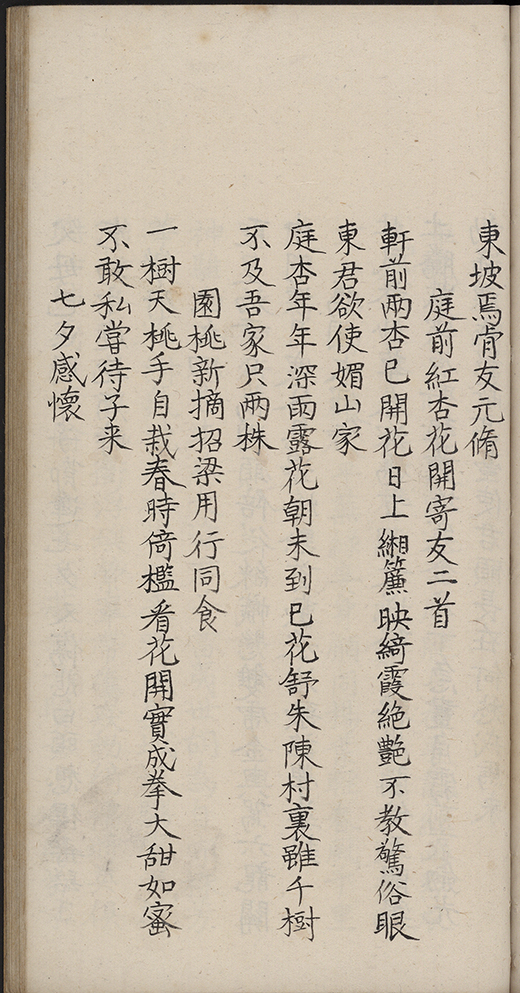 東坡焉肯友元脩
庭前紅杏花開寄友二首
軒前兩杏已開花日上緗簾映綺霞絶艷不教驚俗眼
東君欲使媚山家
庭杏年年深雨露花朝未到已花舒朱陳村裏雖千樹
不及吾家只兩株
園桃新摘招梁用行同食
一樹夭桃手自栽春時倚檻看花開實成拳大甜如蜜
不敢私嘗待子来
七夕感懷